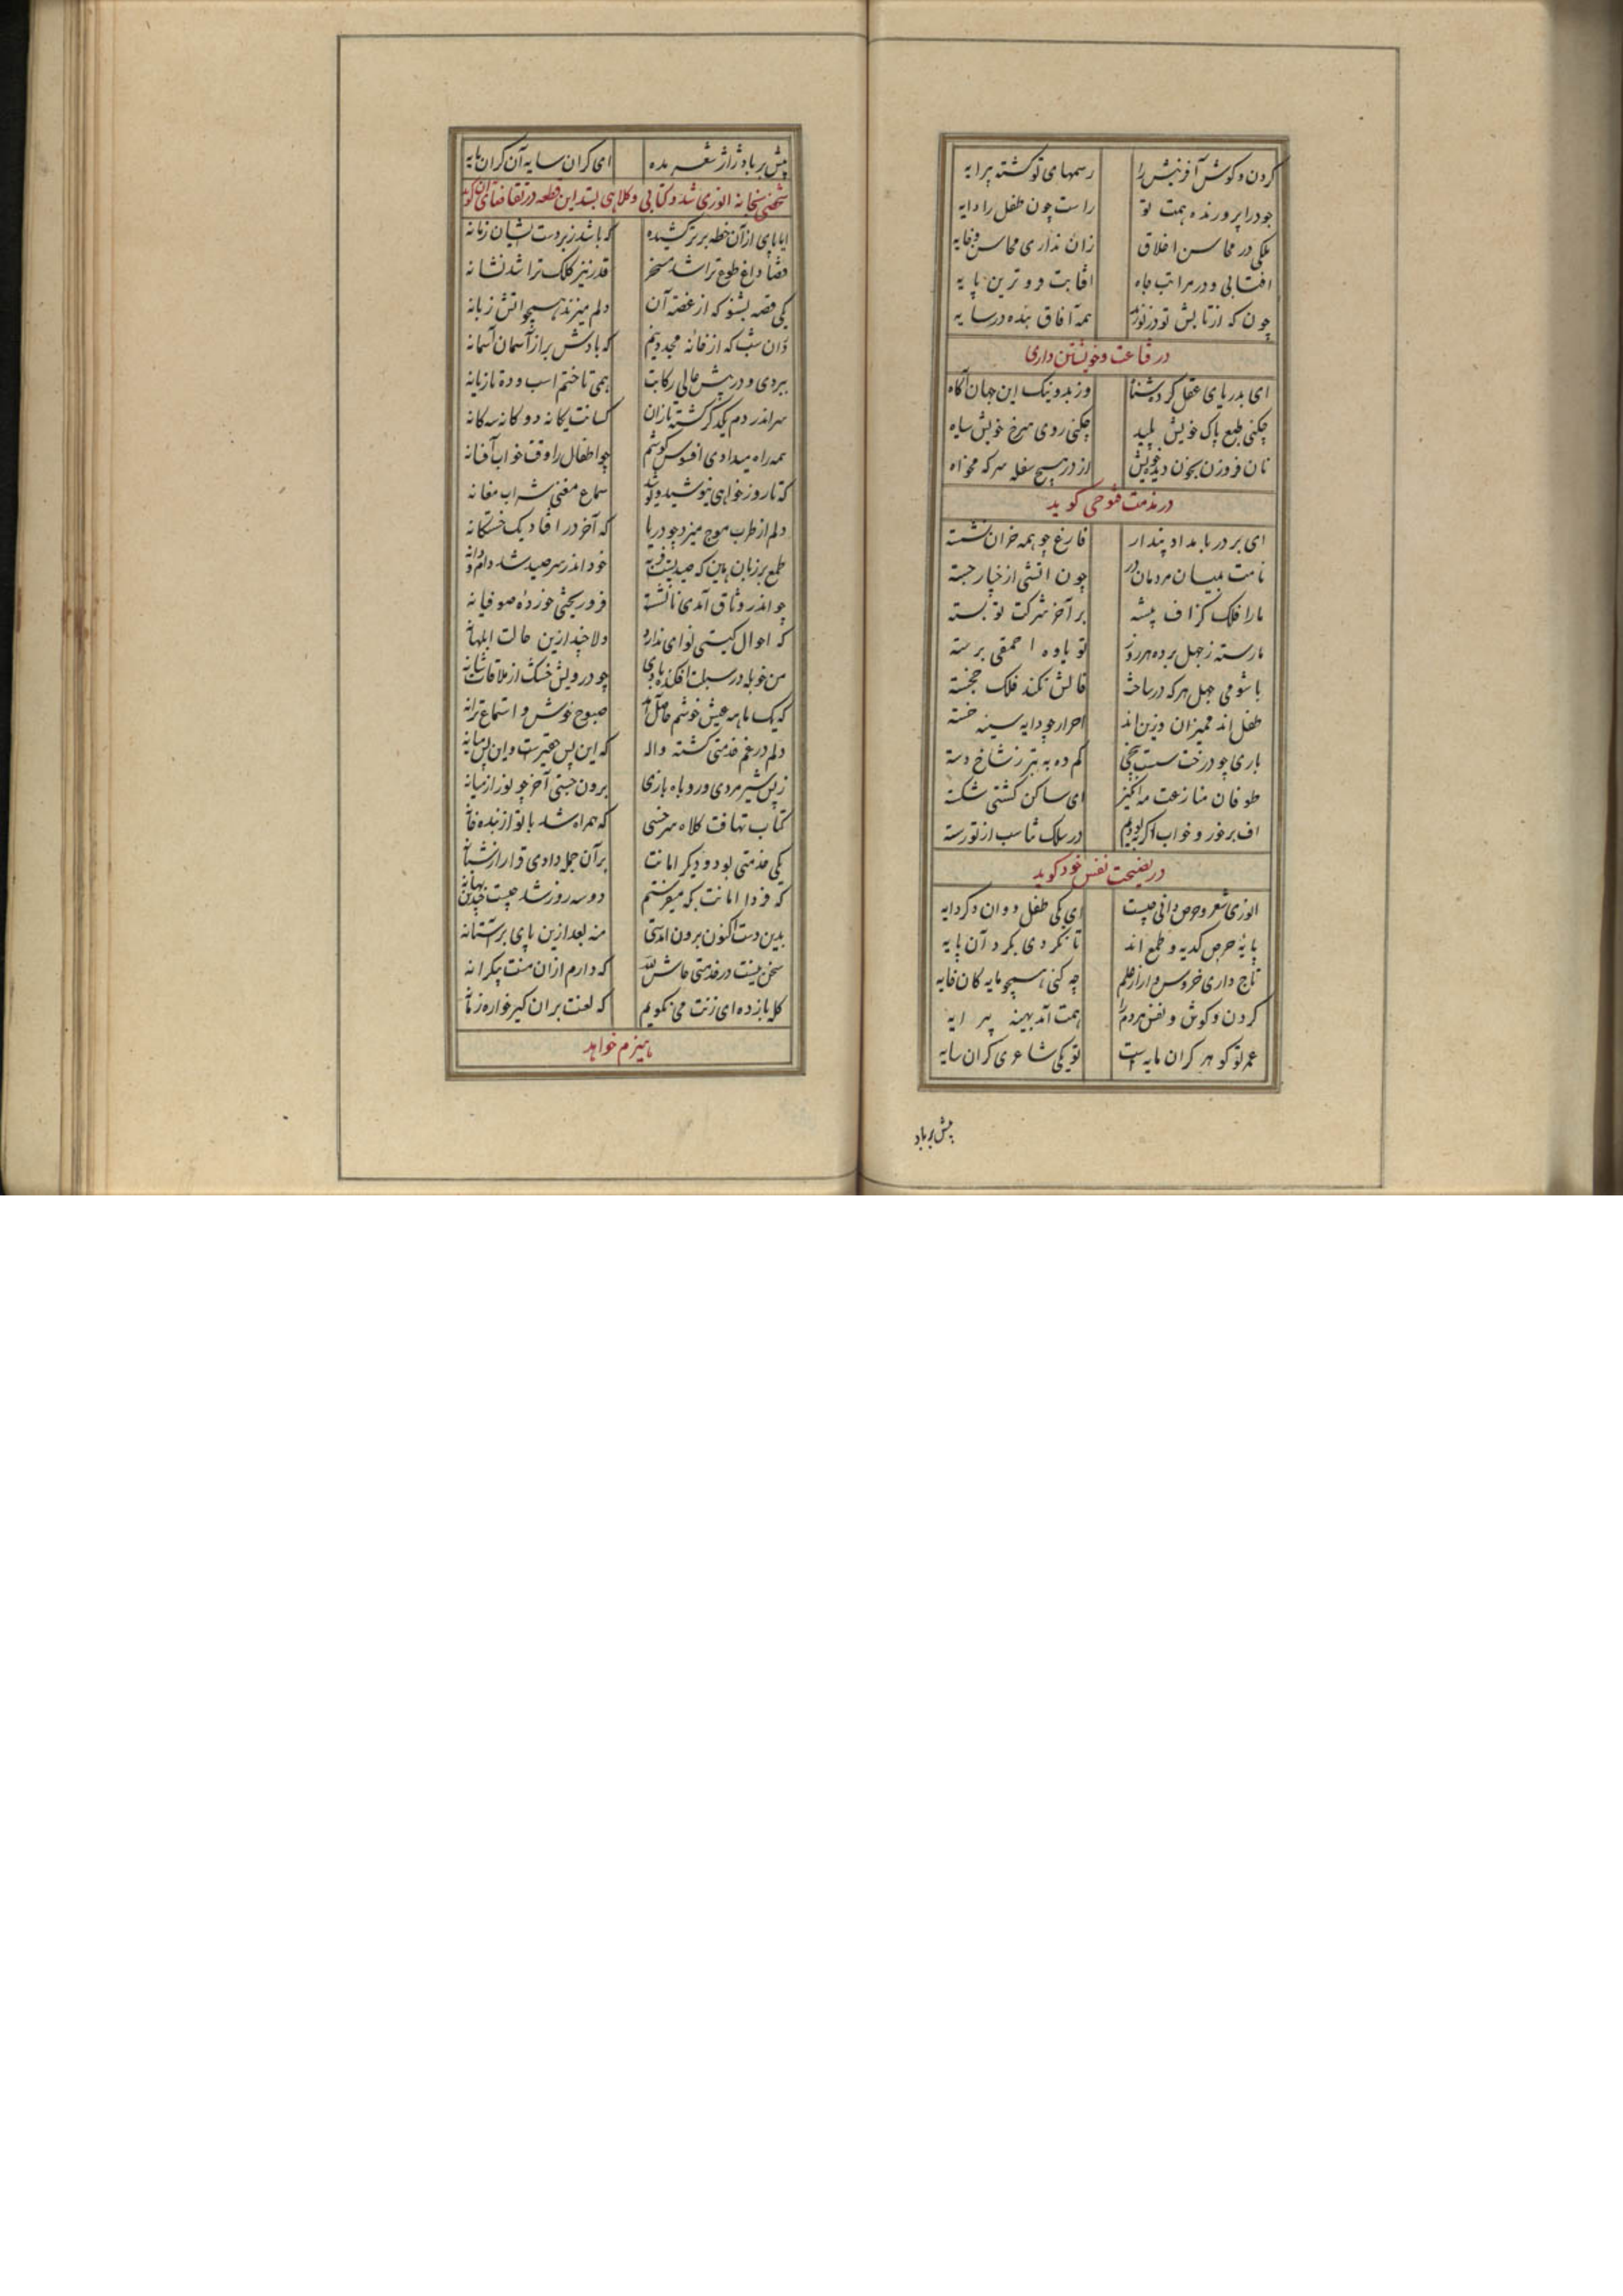 گردن و گوش آفرینش را رسمهای تو گشته پیرایه
جود را پرورنده همت تو راست چون طفل را دایه
ملکی در محاسن اخلاق زان نداری محاسن و خایه
افتابی و در مراتب جاه افتابت دو و ترین پایه
چون که از تابش تو در نورند همه آفاق بنده در سایه
در قناعت و خویشتن داری
ای بدریای عقل کرده شنا وز بد و نیک این جهان آگاه
چکنی طبع پاک خویش پلید چکنی روی سرخ خویش سیاه
نان فرو زن بخون دیده خویش از در هیچ سفله سرکه مخواه
در مذمت فتوحی گوید
ای بر در بامداد پندار فارغ چو همه خران نشسته
نامت بمیان مردمان در چون اتشی از خیار جسته
ما را فلک گزاف پیشه بر آخر شرکت تو بسته
ما رسته ز جهل برده هر روز تو باوه احمقی برسته
با شومی جهل هرکه در ساخت فالش نکند فلک خجسته
طفل اند ممیزان و زین اند احرار چو دایه سینه خسته
باری چو درخت سست بیخی کم ده به تبر ز شاخ دسته
طوفان منازعت مه انگیز ای ساکن کشتی شکسته
اف بر خور و خواب اگر بودیم در سلک تناسب از تو رسته
در نصیحت نفس خود گوید
انوری شعر و حرص دانی چیست ای یکی طفل دوان دگر دایه
پایه حرص کدیه و طمع اند تا نگردی بگرد آن پایه
تاج داری خروس وار از علم چه کنی همچو مایه کان خایه
گردن و گوش و نفس مردم را همت آمد بهینه پیرایه
عمر تو گوهر گران مایه است تو یکی شاعری گران سایه
پیش بر باد
پیش بر باد ژاژ شعر مده ای گران سایه آن گران مایه
شخصی بخانه انوری شد و کتابی و کلاهی بستد این قطعه در تقاضای آن گوید
ایا پای از آن خطه برتر کشیده که باشد زبردست شیان زمانه
قضا داغ طوع ترا شد مسخر قدر تیر کلک ترا شد نشانه
یکی قصه بشنو که از غصه آن دلم میزند همچو اتش زبانه
زان شب که از خانه مجد دینم که بادش براز آسمان آستانه
ببردی و در پیش عالی رکابت همی تاختم اسب و ده تازیانه
سر اندر دم یکدگر گشته یازان کسانت یکانه دوکانه سه کانه
همه راه میدادی افسوس گوشم چو اطفال را وقت خواب آفسانه
که تا روز خواهی نیوشید و نوشید سماع مغنی شراب مغانه
دلم از طرب موج میزد چو دریا که آخر در افتاد یک خشتکانه
طمع بر زبان هین که صیدیست فربه خود اندر سر صید شد دام و دانه
چو اندر وثاق آمدی نانشسته فرو ریختی خورده صوفیانه
که احوال گیتی نوای ندارد دلا خند ازین حالت ابلهانه
چو درویش خشک از ملاقات شانه
که یک ماهه عیش خوشم حاصل آمد صبوح خوش و استماع ترانه
دلم در غم خدمتی گشته واله که این بس حقیرست وان بس میانه
ز بس شیر مردی و روباه بازی برون جستی آخر چو نور از میانه
کتاب تهافت کلاه سرخسی که همراه شد با تو از بنده خانه
یکی خدمتی بود و دیگر امانت بر آن جمله دادی قرار از شبانه
که فردا امانت بکه میفرستم دو سه روز شد چیست چندین بهانه
بدین دست اکنون برون امدستی منه بعد ازین پای بر آستانه
سخن نیست در خدمتی حاش لله که دارم ازان منت بیکرانه
کله باز ده ای زنت می نگویم که لعنت بران گیر خواره زمانه
هیزم خواهد